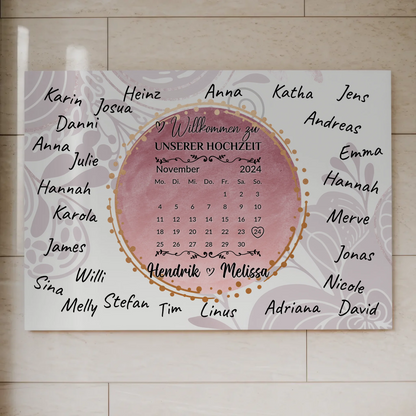 Karin
Josua
Heinz
Anna
Katha
Jens
Danni
Andreas
Anna
Julie
Emma
Hannah
Hannah
Karola
Merve
James
Jonas
Willi
Nicole
Sina
Melly
Stefan
Tim
Linus
Adriana
David
Willkommen zu
UNSERER HOCHZEIT
November 2024
Mo. Di. Mi. Do. Fr. Sa. So.
1 2 3
4 5 6 7 8 9 10
11 12 13 14 15 16 17
18 19 20 21 22 23 24
25 26 27 28 29 30
Hendrik ♡ Melissa